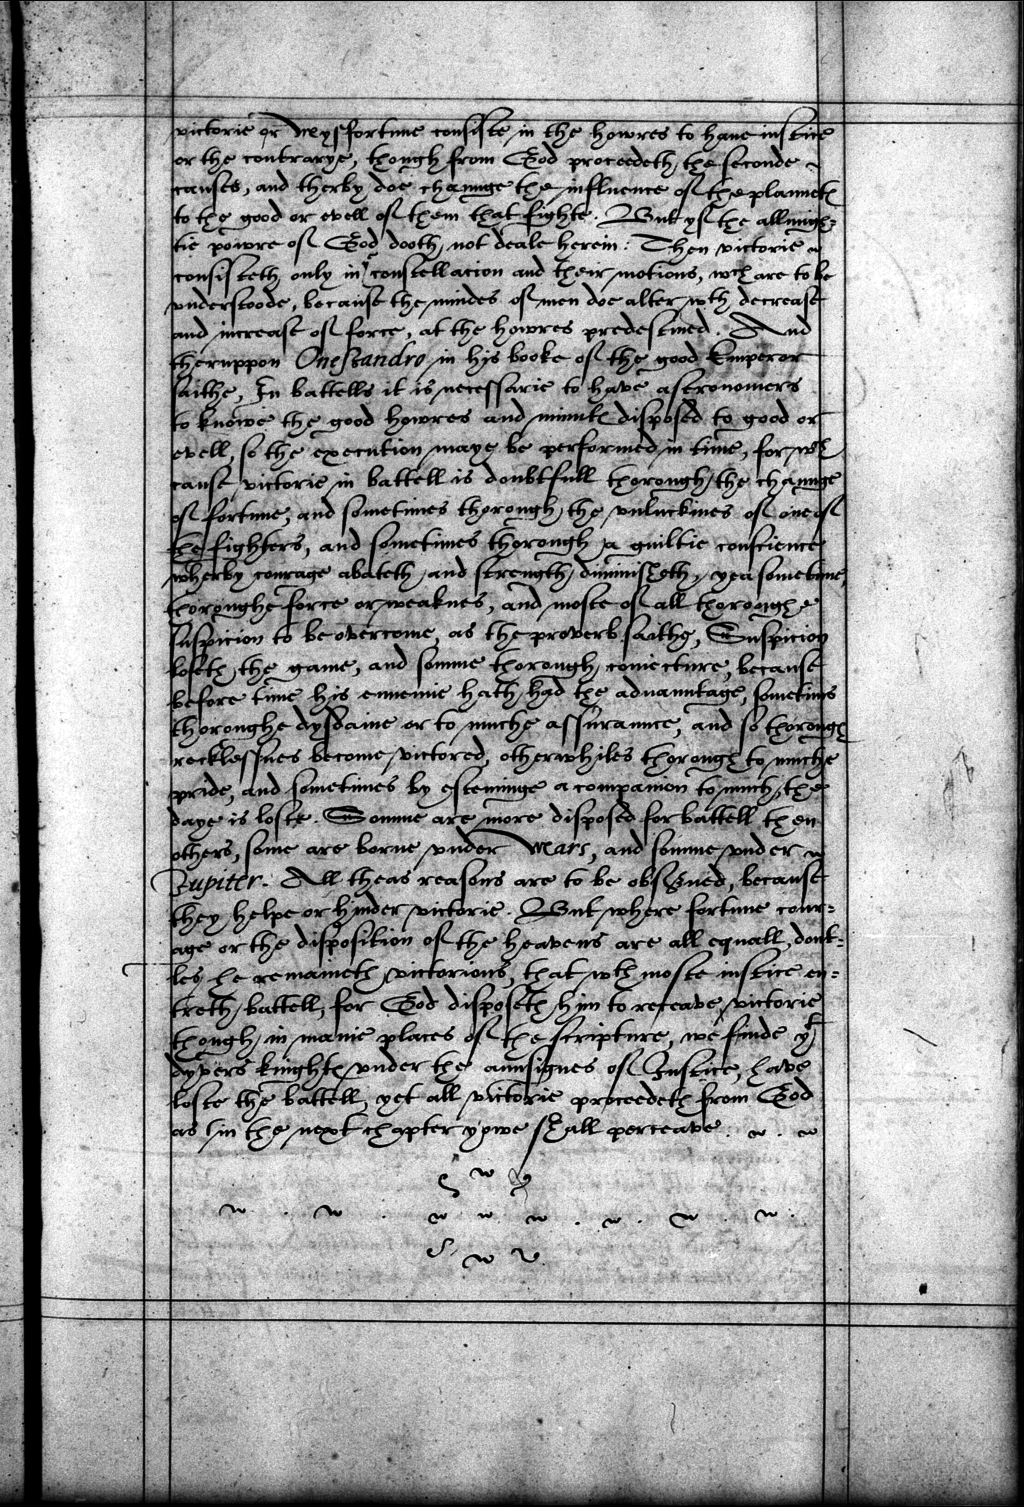 victorie or mysfortune consiste in the howres to haue iustice
or the contrarye, though from God proceedeth the seconde
causes, and therby doe chaunge the influence of the plannetes
to the good or evell of them that fighte. But yf the allmigh=
tie powre of God dooth not deale herein: Then victorie
consisteth only in constellacion and their motions, wch are to be
vnderstoode, because the mindes of men doe alter wth decrease
and increase of force, at the howres predestined. And
theruppon Onesandro in his booke of the good Emperor
saithe, In battells it is necessarie to have astronomers
to knowe the good howres and minutes disposed to good or
evell, so the execution maye be performed in time, for wch
cause victorie in battell is doubtfull thorough the chaunge
of fortune, and sometimes thorough the vnluckines of one of
the fighters, and sometimes thorough a guiltie conscience
wherby courage abateth and strength diminisheth, yea sometime,
thoroughe force or weaknes, and moste of all thoroughe
suspicion to be overcome, as the proverb saithe, Suspicion
loseth the game, and somme thorough coniecture, because
before time his ennemie hath had the aduauntage, sometimes
thoroughe dysdaine or to muche assuraunce, and so thorough
recklessnes become victored, otherwhiles thorough to muche
pride, and sometimes by esteminge a companion to much, the
daye is loste. Somme are more disposed for battell then
others, some are borne vnder Mars, and somme vnder
Jupiter. All theas reasons are to be obserued, because
they helpe or hynder victorie. But where fortune cour=
age or the disposition of the heavens are all equall, dout=
les he remaineth victorious, that wth moste iustice en=
treth battell, for God disposeth him to receave victorie
though in manie places of the scripture, we finde yt
dyvers knightes vnder the aunsignes of Iustice, have
loste the battell, yet all victorie proceedeth from God
as in the next chapter yowe shall perceave.